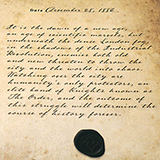 Date December 28, 1886
It is the dawn of a new age,
an age of scientific marvels, but
underneath the dense London fog
in the shadows of the Industrial
Revolution, enemies both old
and new threaten to throw the
city and the world into chaos.
Watching over the city are
humanity's only protectors, an
elite band of Knights known as
The Order, and the outcome of
this struggle will determine the
course of history forever.